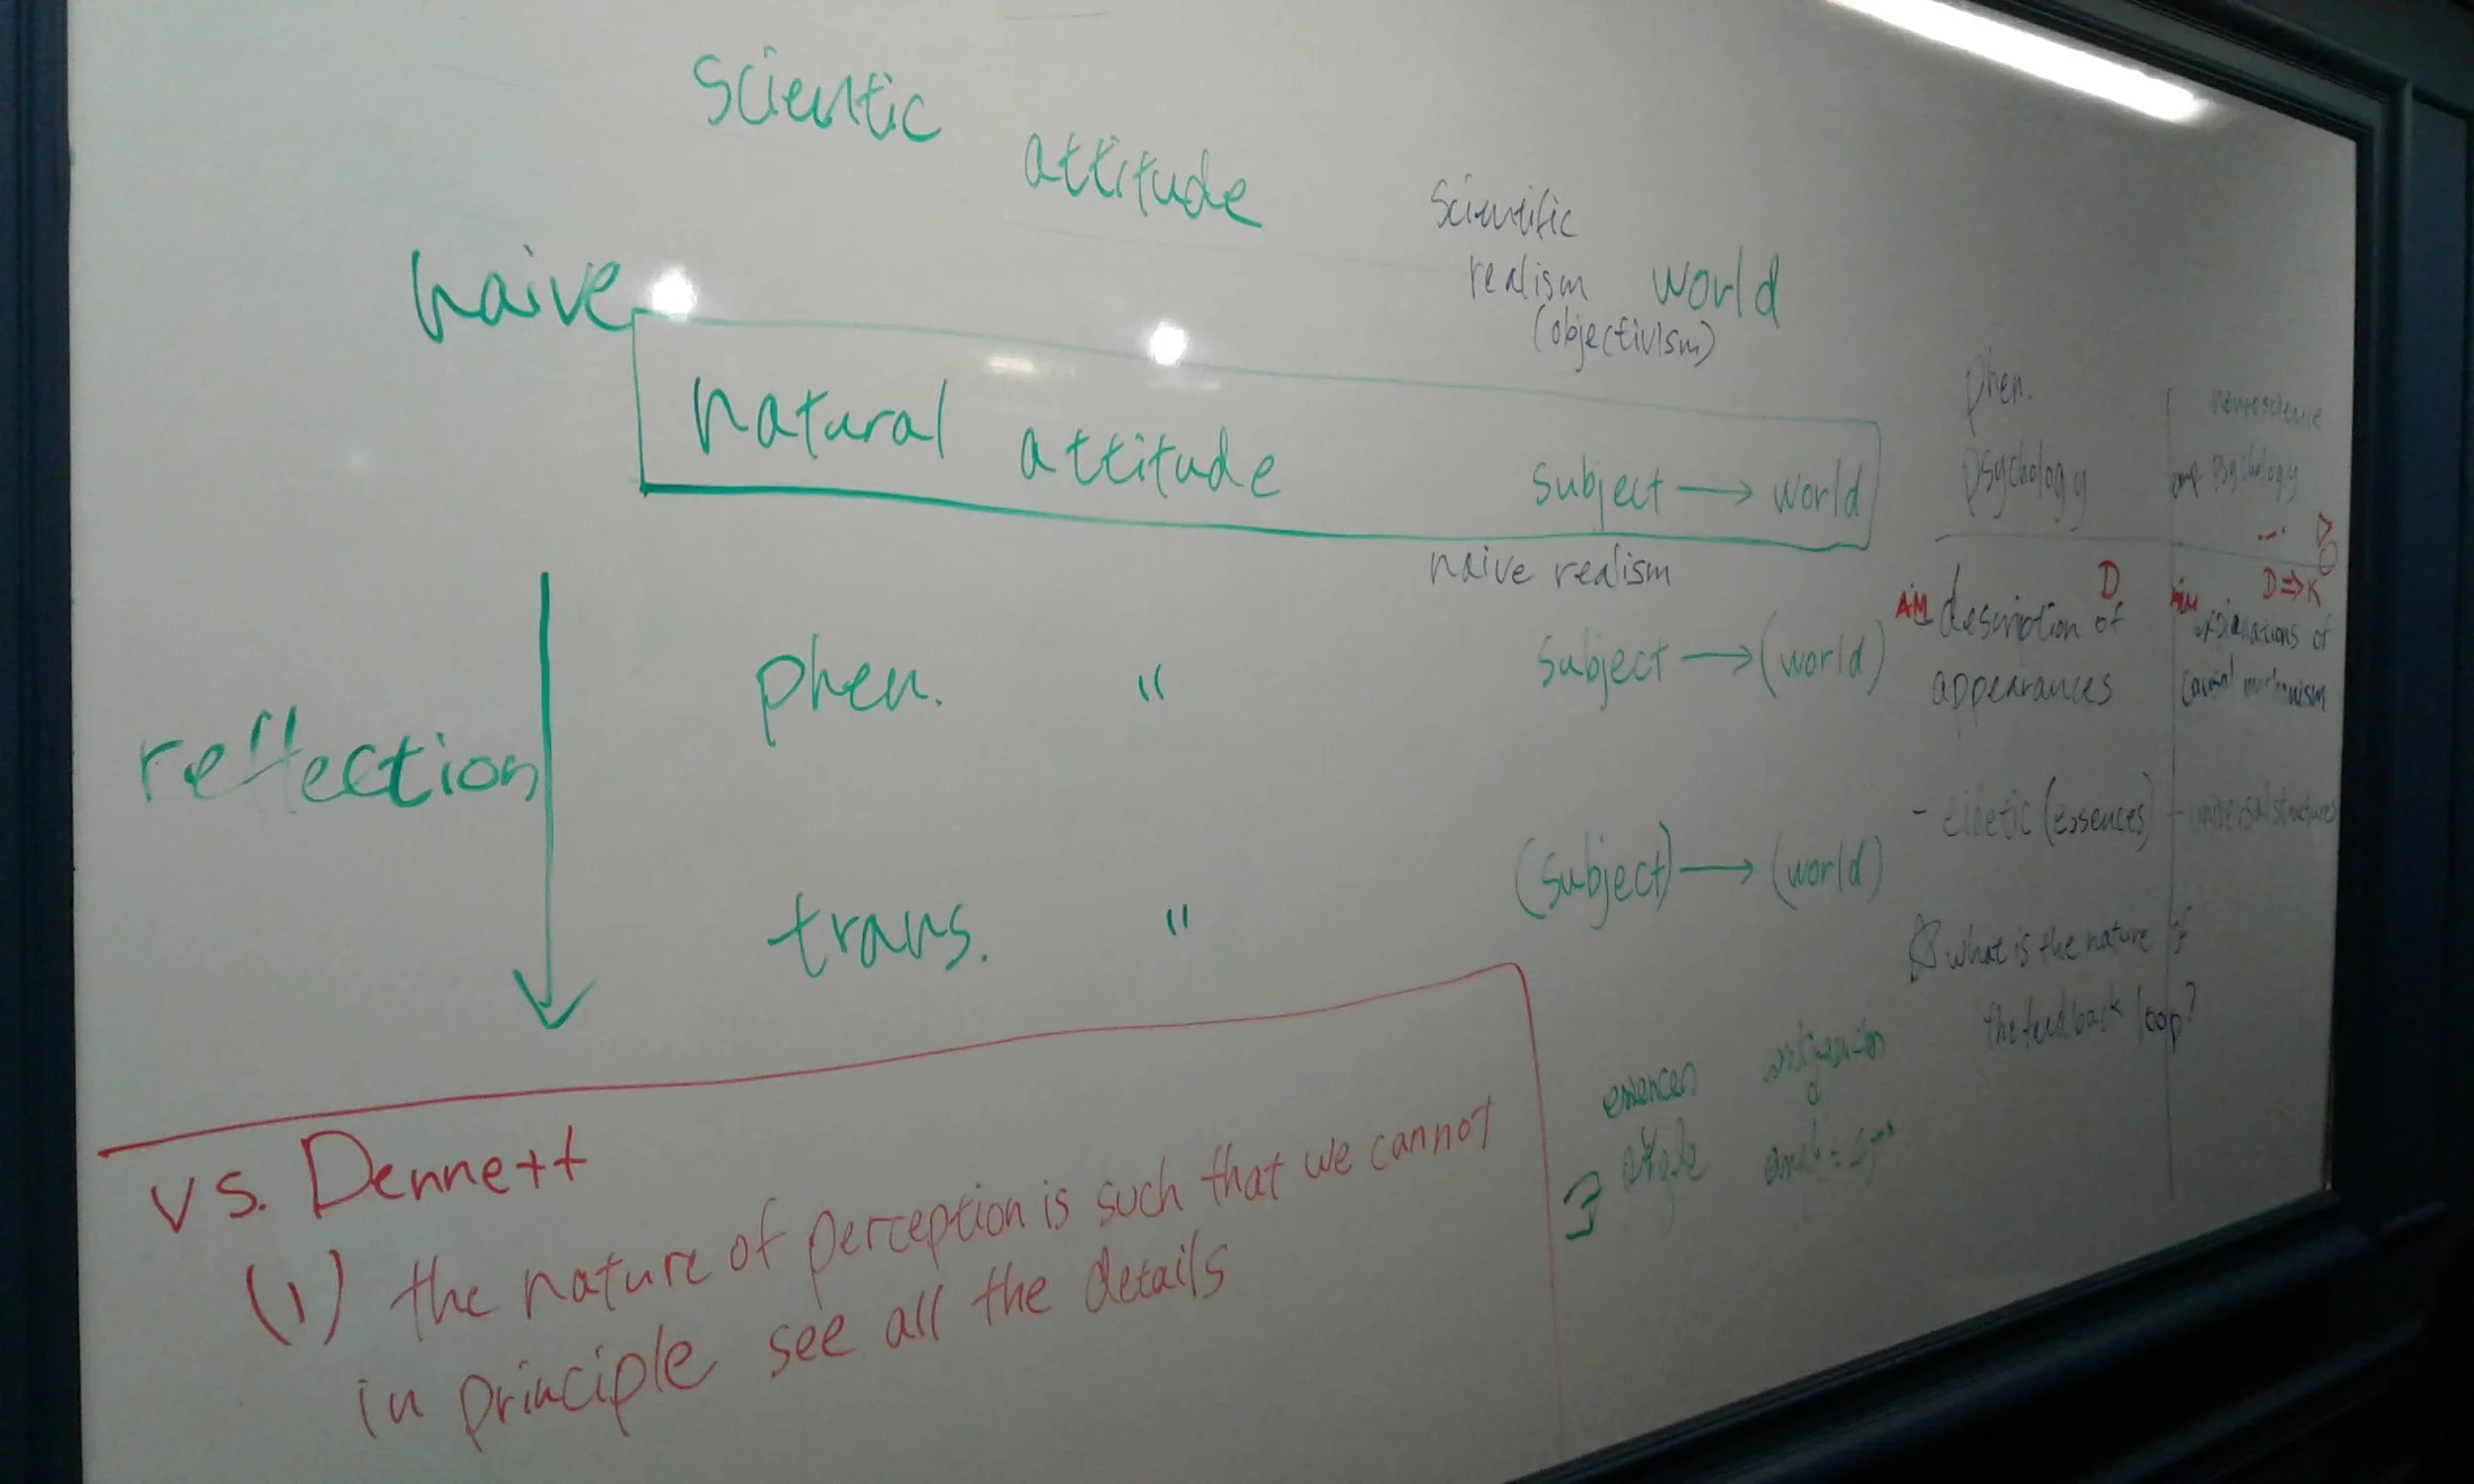 scientic attitude
scientific
realism world
(objectivism)
naive
natural attitude subject → world
naive realism
reflection
phen. " subject → (world)
trans. " (subject) → (world)
phen.
psychology
neuroscience
psychology
...
D
AIM description of
appearances
D ⇒ K
explanations of
causal mechanism
- eidetic (essences) - universal structures
what is the nature of
the feedback loop?
vs. Dennett
(1) the nature of perception is such that we cannot
in principle see all the details